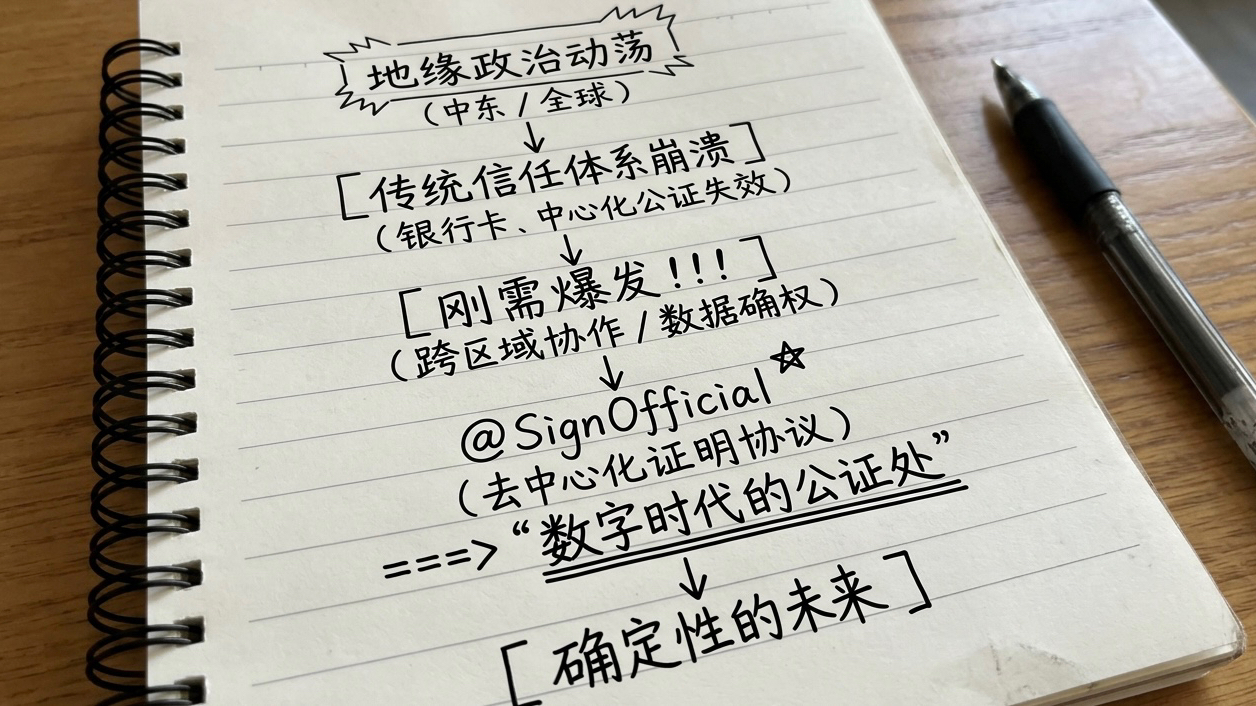 地缘政治动荡
(中东 / 全球)
↓
[传统信任体系崩溃]
(银行卡、中心化公证失效)
↓
[刚需爆发!!!]
(跨区域协作 / 数据确权)
↓
@SignOfficial☆
(去中心化证明协议)
===>“数字时代的公证处”
↓
[确定性的未来]